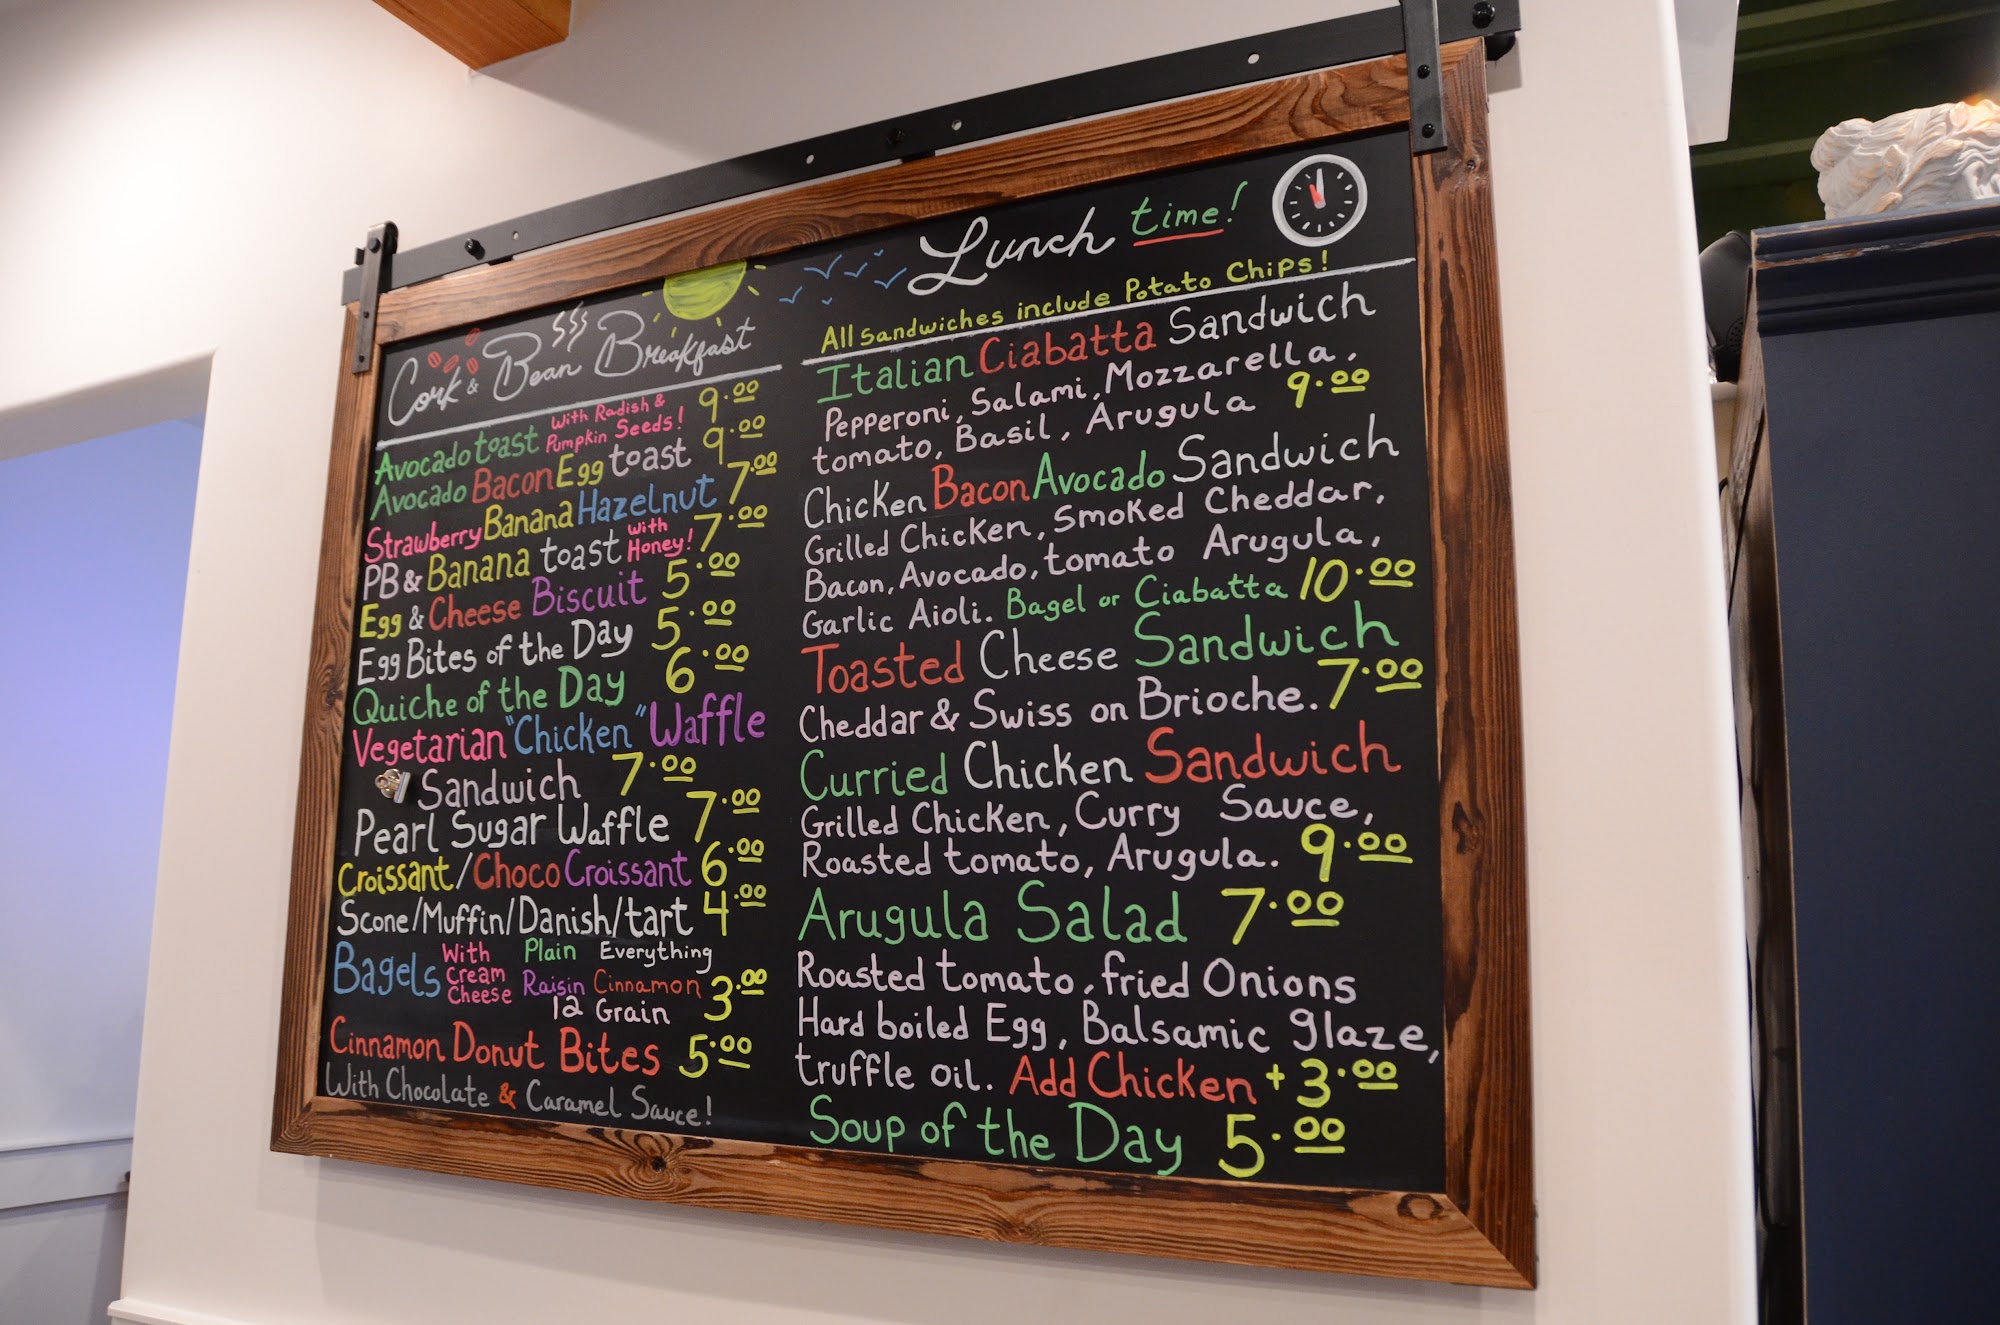 Cork & Bean Breakfast
Avocado toast With Radish & Pumpkin Seeds! 9.00
Avocado Bacon Egg toast 9.00
Strawberry Banana Hazelnut 7.00
PB & Banana toast with Honey! 7.00
Egg & Cheese Biscuit 5.00
Egg Bites of the Day 5.00
Quiche of the Day 6.00
Vegetarian "Chicken" Waffle
Sandwich 7.00
Pearl Sugar Waffle 7.00
Croissant/Choco Croissant 6.00
Scone/Muffin/Danish/tart 4.00
Bagels With Cream Cheese Plain Everything
Raisin Cinnamon 3.00
12 Grain
Cinnamon Donut Bites 5.00
With Chocolate & Caramel Sauce!
Lunch time!
All sandwiches include Potato Chips!
Italian Ciabatta Sandwich
Pepperoni, Salami, Mozzarella,
tomato, Basil, Arugula 9.00
Chicken Bacon Avocado Sandwich
Grilled Chicken, Smoked Cheddar,
Bacon, Avocado, tomato Arugula,
Garlic Aioli. Bagel or Ciabatta 10.00
Toasted Cheese Sandwich
Cheddar & Swiss on Brioche. 7.00
Curried Chicken Sandwich
Grilled Chicken, Curry Sauce,
Roasted tomato, Arugula. 9.00
Arugula Salad 7.00
Roasted tomato, fried Onions
Hard boiled Egg, Balsamic glaze,
truffle oil. Add Chicken + 3.00
Soup of the Day 5.00